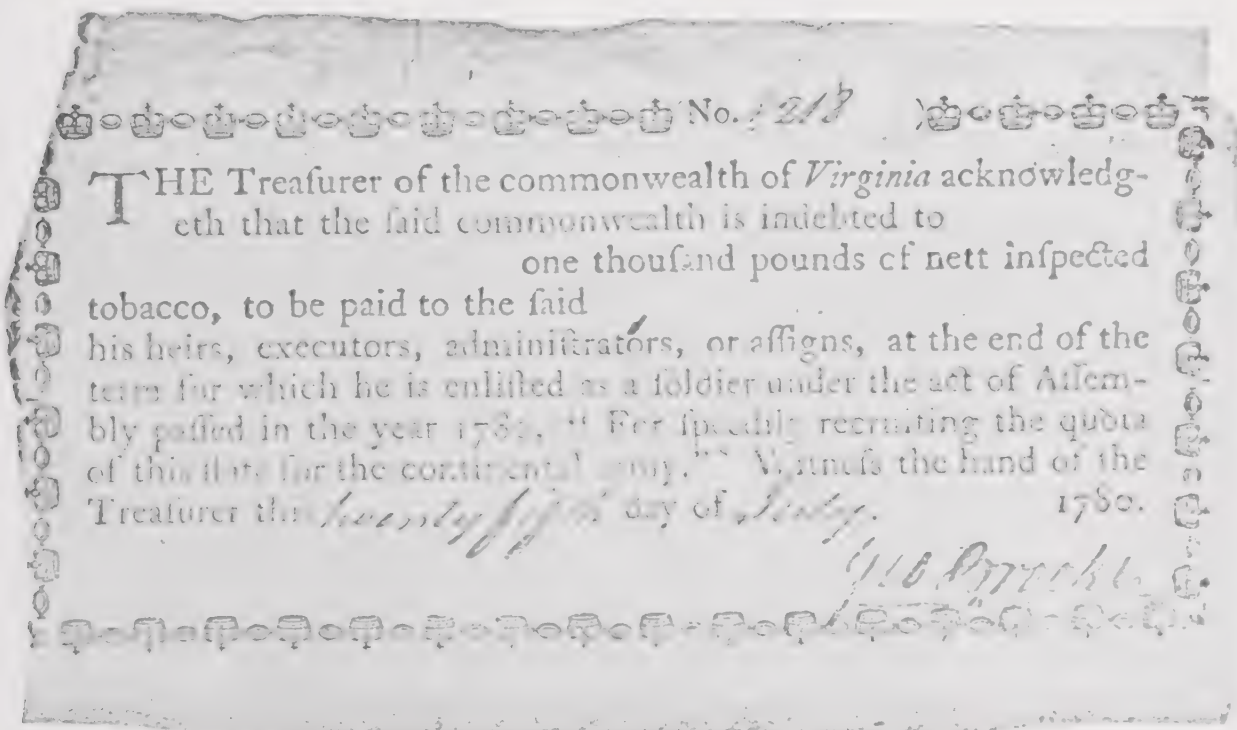 No. 1218
THE Treaſurer of the commonwealth of Virginia acknowledg-
eth that the ſaid commonwealth is indebted to
one thouſand pounds of nett inſpected
tobacco, to be paid to the ſaid
his heirs, executors, adminiſtrators, or aſſigns, at the end of the
term for which he is enliſted as a ſoldier under the act of Aſſem-
bly paſſed in the year 1780, "For ſpeedily recruiting the quota
of this ſtate for the continental army." Witneſs the hand of the
Treaſurer this twenty day of July. 1780.
Geo